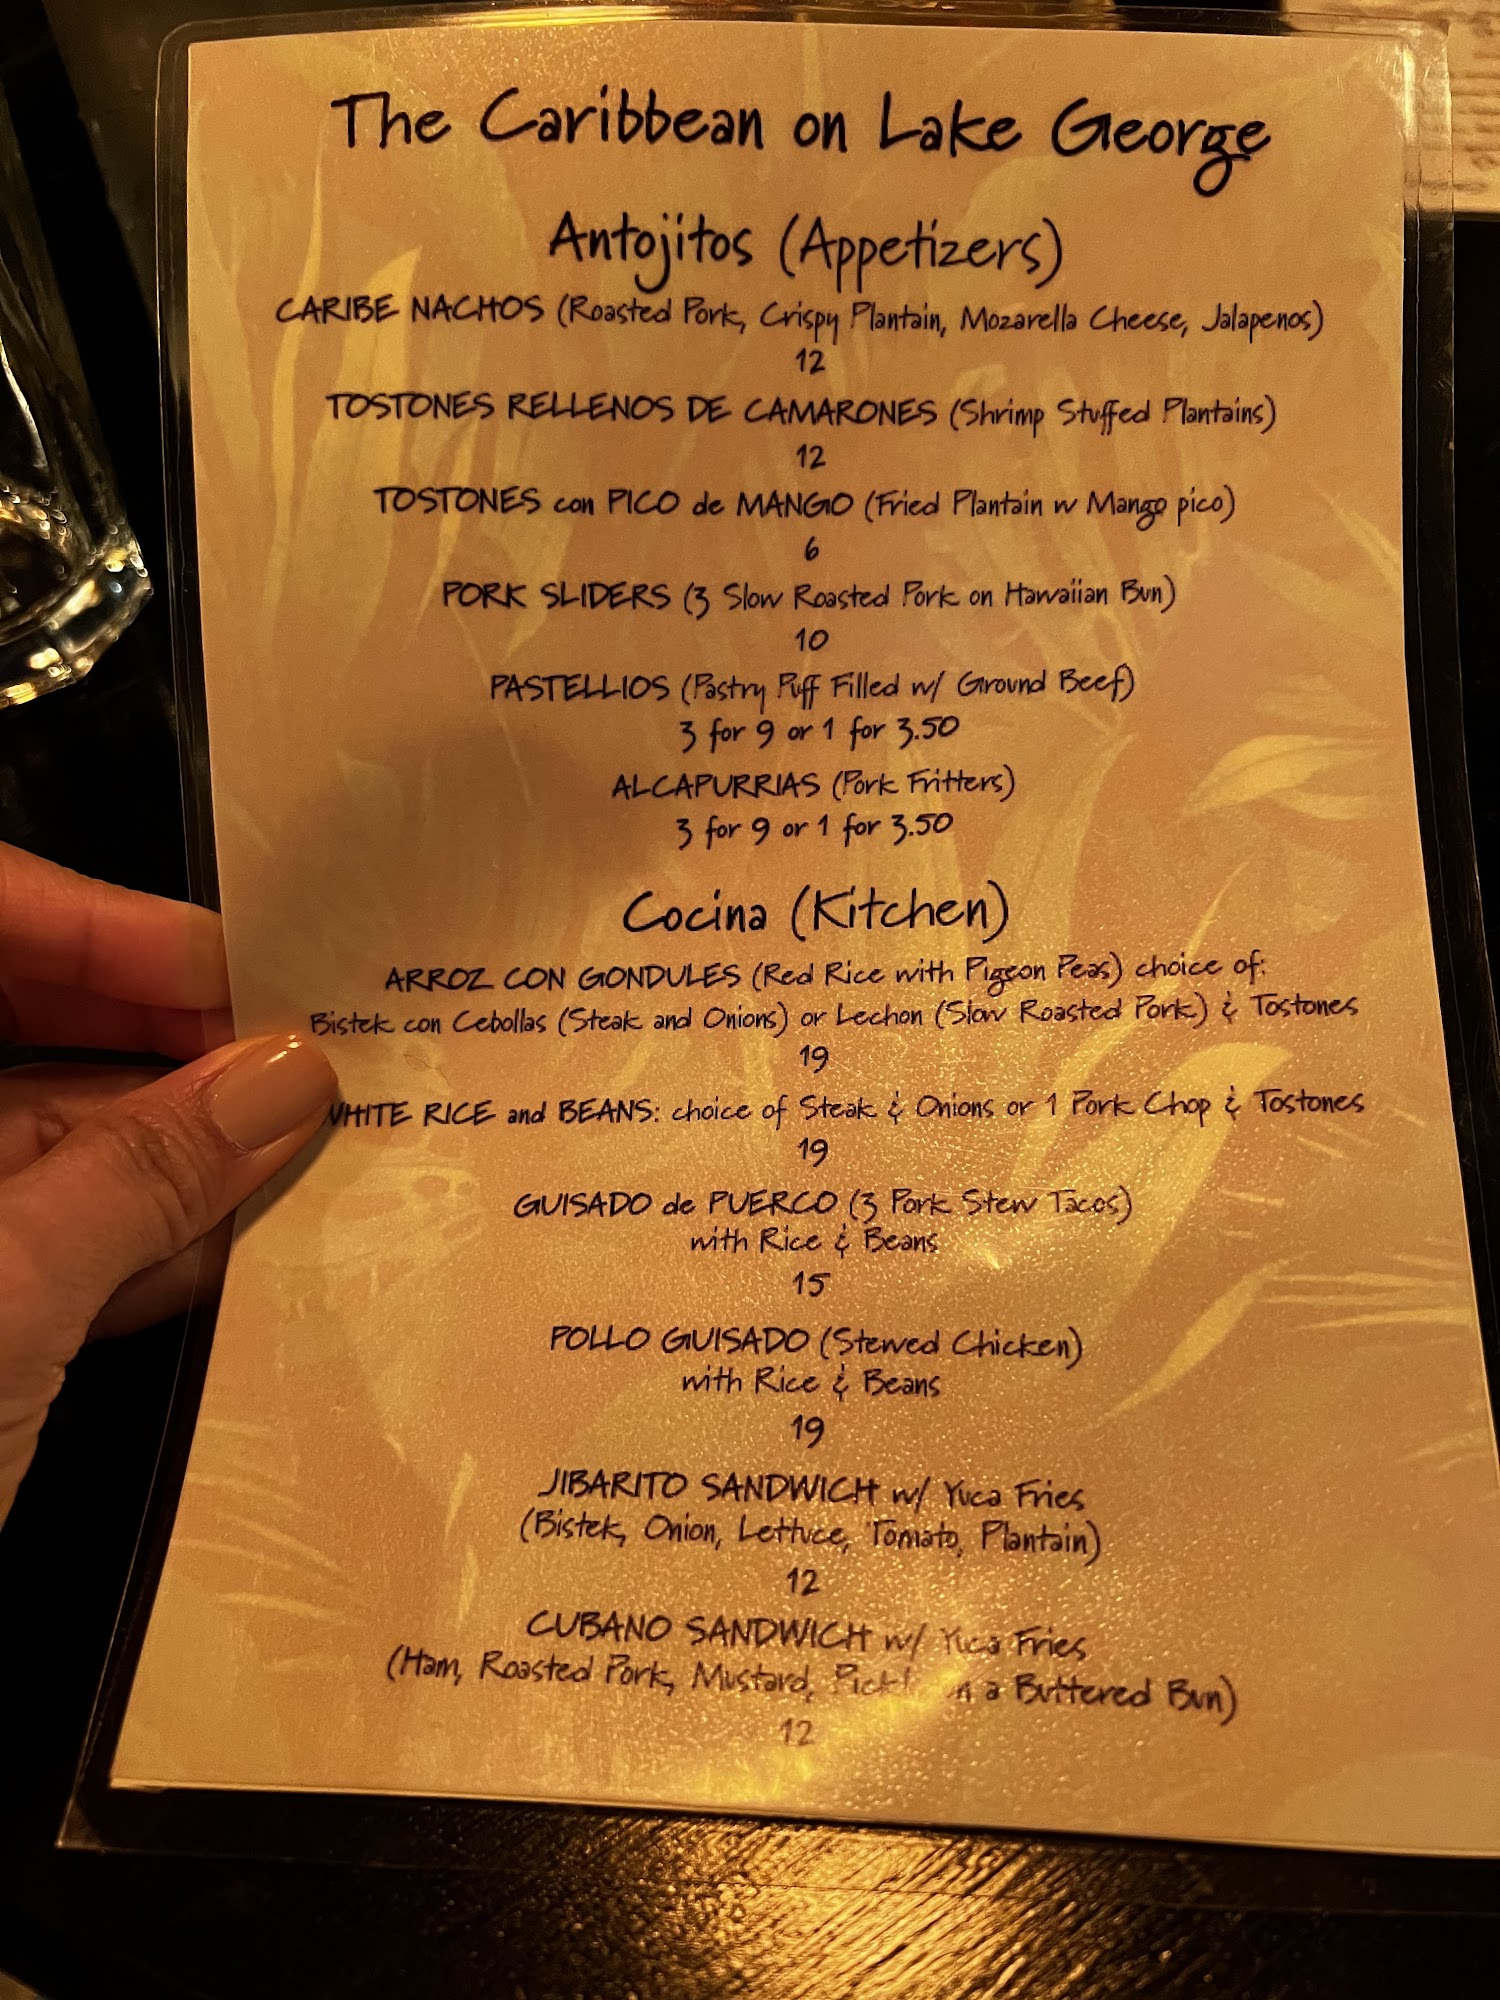 The Caribbean on Lake George
Antojitos (Appetizers)
CARIBE NACHOS (Roasted Pork, Crispy Plantain, Mozarella Cheese, Jalapenos)
12
TOSTONES RELLENOS DE CAMARONES (Shrimp Stuffed Plantains)
12
TOSTONES con PICO de MANGO (Fried Plantain w Mango pico)
6
PORK SLIDERS (3 Slow Roasted Pork on Hawaiian Bun)
10
PASTELLIOS (Pastry Puff Filled w/ Ground Beef)
3 for 9 or 1 for 3.50
ALCAPURRIAS (Pork Fritters)
3 for 9 or 1 for 3.50
Cocina (Kitchen)
ARROZ CON GONDULES (Red Rice with Pigeon Peas) choice of:
Bistek con Cebollas (Steak and Onions) or Lechon (Slow Roasted Pork) & Tostones
19
WHITE RICE and BEANS: choice of Steak & Onions or 1 Pork Chop & Tostones
19
GUISADO de PUERCO (3 Pork Stew Tacos)
with Rice & Beans
15
POLLO GUISADO (Stewed Chicken)
with Rice & Beans
19
JIBARITO SANDWICH w/ Yuca Fries
(Bistek, Onion, Lettuce, Tomato, Plantain)
12
CUBANO SANDWICH w/ Yuca Fries
(Ham, Roasted Pork, Mustard, on a Buttered Bun)
12